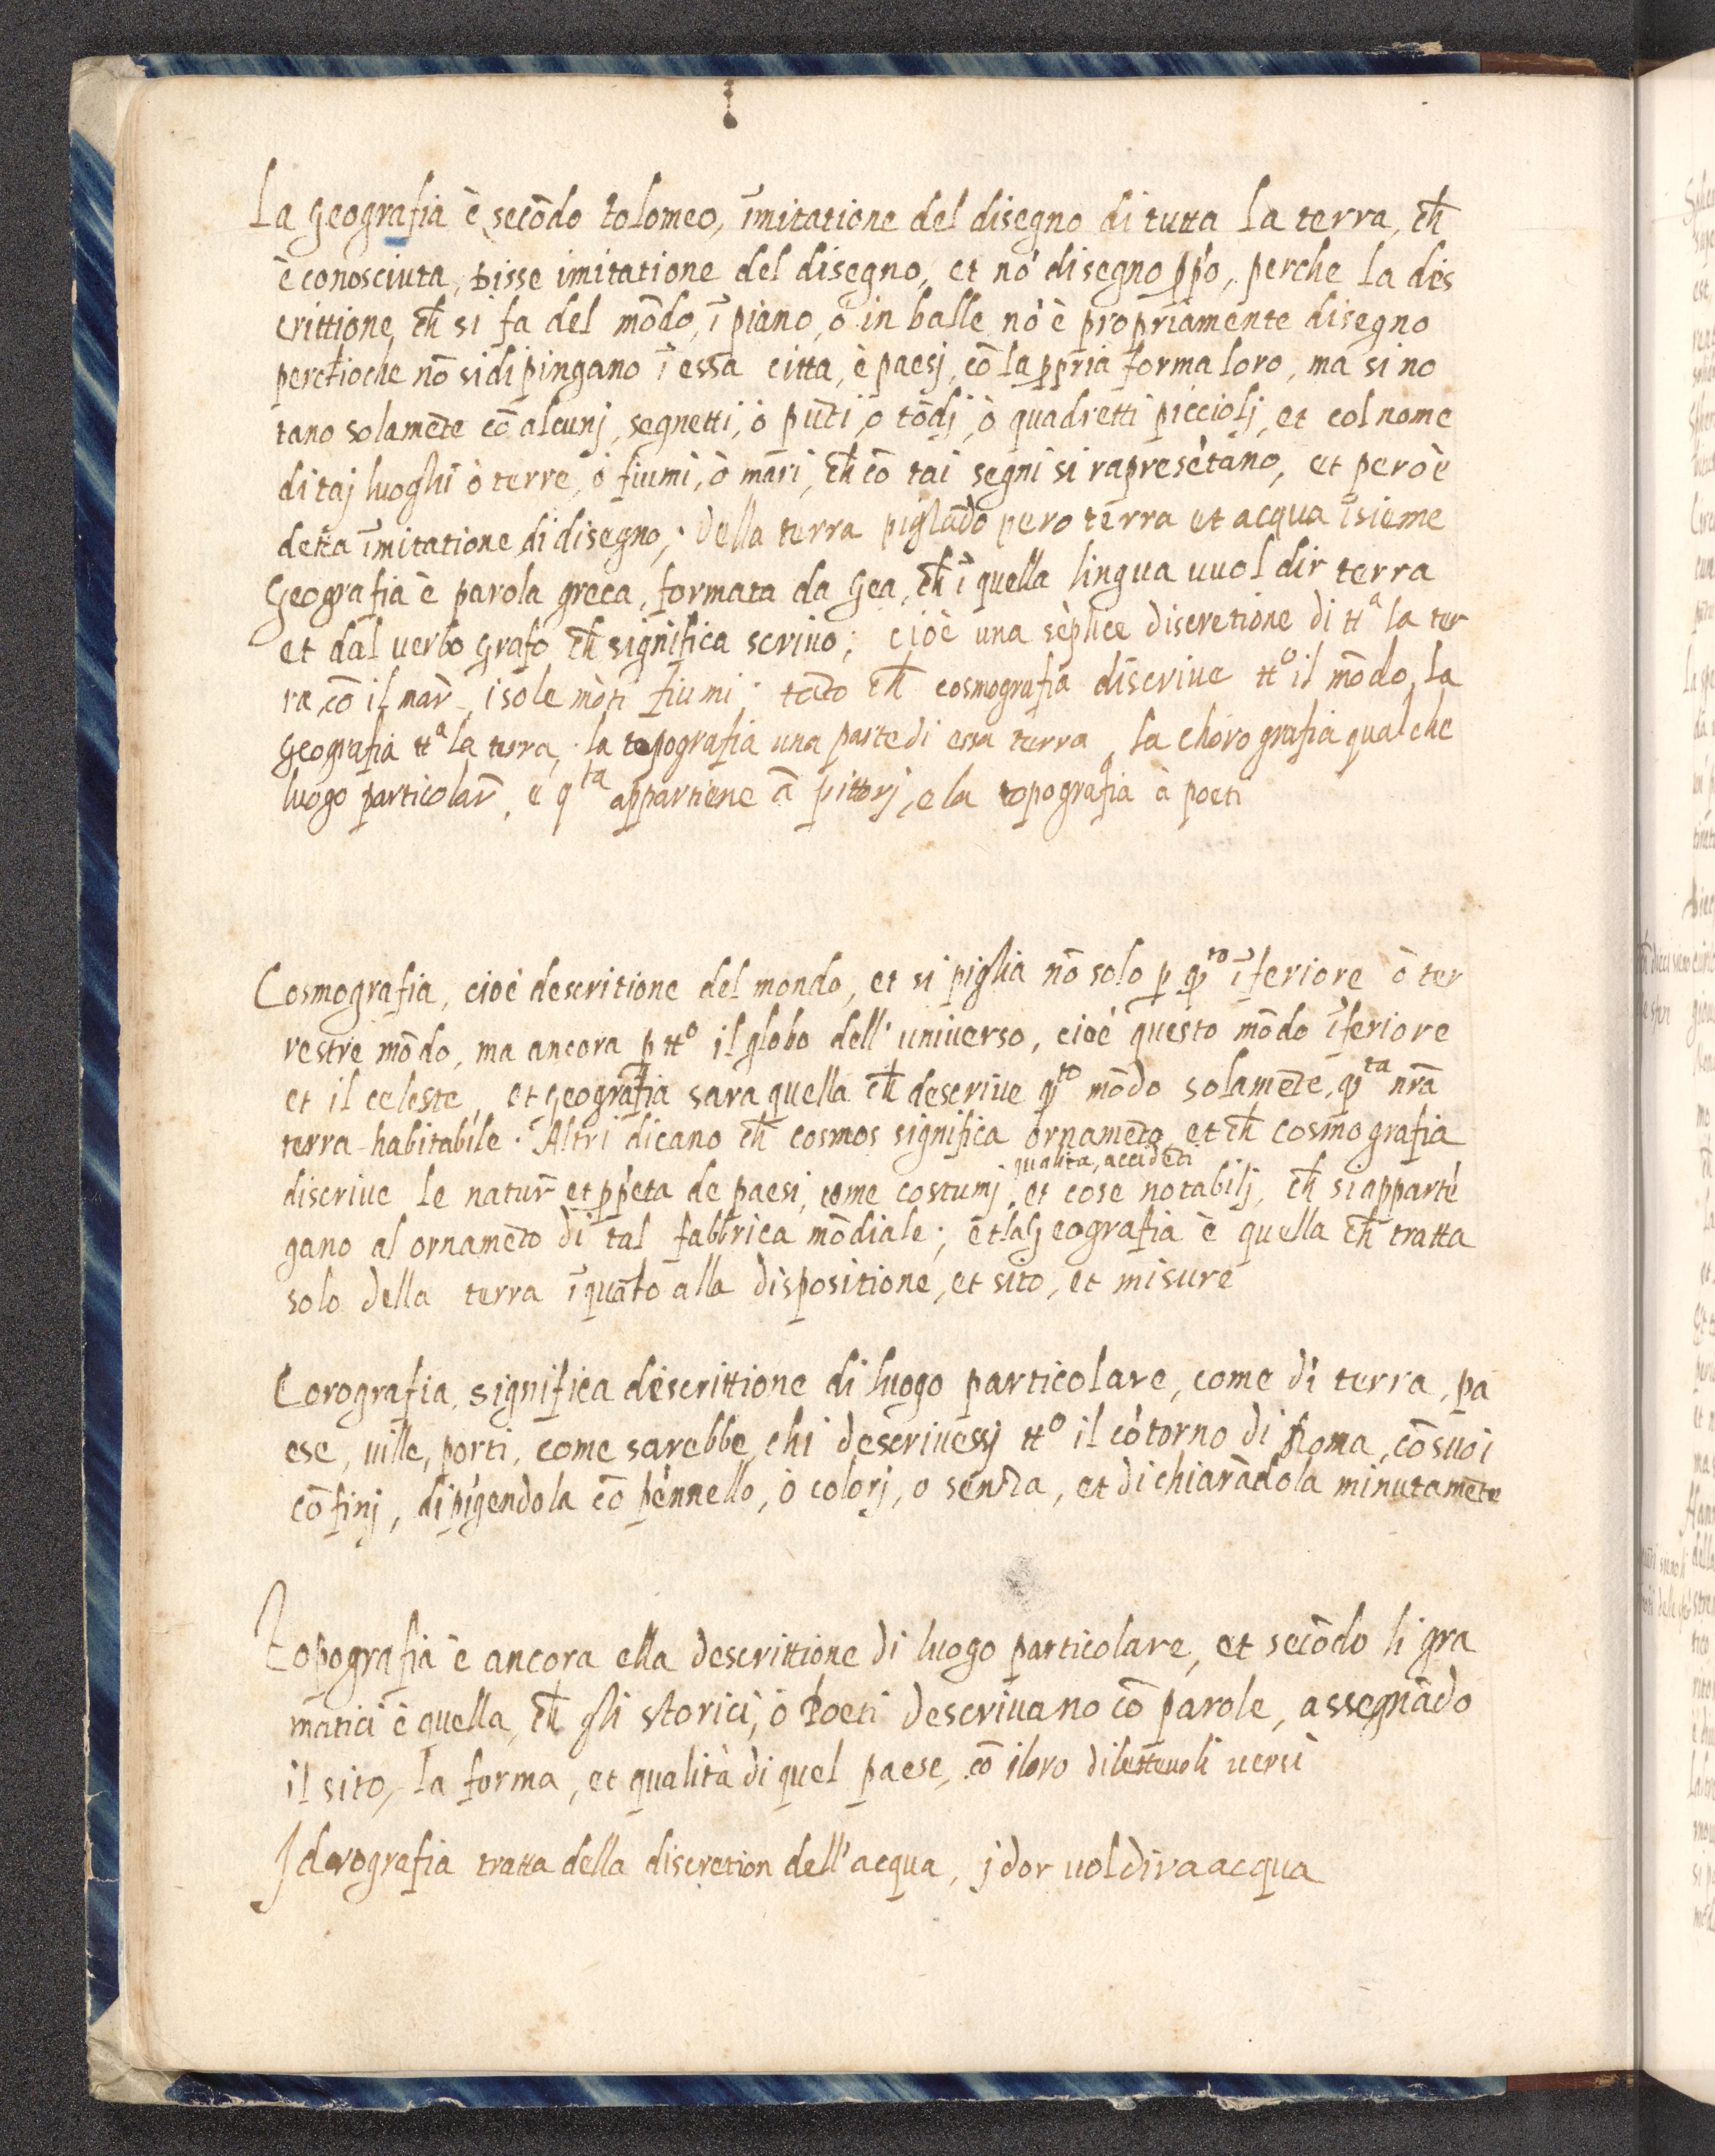 La geografia è secōdo tolomeo, īmitatione del disegno di tutta la terra, ch̄
è conosciuta, Disse imitatione del disegno, et nō disegno ꝑpo, perche la dis
crittione ch̄ si fa del mōdo, ī piano, ò in balle nō è propriamente disegno
percħioche nō si dipingano ī essa citta, è paesj, cō la ꝑpria forma loro, ma si no
tano solamēte cō alcunj segnetti, ò pūti, o tōdj, ò quadretti picciolj, et col nome
di taj luoghi ò terre, ò fiumi, ò mari, ch̄ cō tai segni si rapresētano, et però è
detta īmitatione di disegno; della terra piglādo pero terra et acqua īsieme
Geografia è parola greca, formata da Gea, ch̄ ī quella lingua uuol dir terra
et dal uerbo grafo ch̄ significa scriuo; cioè una sēplice discretione di ttª la ter
ra, cō il mar̄, isole mōti fiumi. tāto ch̄ cosmografia discriue ttº il mōdo, la
Geografia ttª la terra, la topografia una parte di essa terra, la chorografia qualche
luogo particolar̄, e qᵗᵃ appartiene à pittorj, e la topografia à poeti
Cosmografia, cioè descritione del mondo, et si piglia nō solo ꝑ qᵗᵒ īferiore ò ter
restre mōdo, ma ancora ꝑ ttº il globo dell' uniuerso, cioè questo mōdo īferiore
et il celeste, et geografia sara quella ch̄ descriue qᵗᵒ mōdo solamēte, qᵗᵃ nr̄a
terra habitabile. Altri dicano ch̄ cosmos significa ornamēto, et ch̄ cosmografia
qualita, accidēti
discriue le natur̄ et ꝑp̄eta de paesi, come costumj, et cose notabilj, ch̄ si appartē
gano al ornamēto di tal fabbrica mōdiale; et la Geografia è quella ch̄ tratta
solo della terra īquāto alla dispositione, et sito, et misure
Corografia, significa descrittione di luogo particolare, come di terra, pa
ese, uille, porti, come sarebbe, chi descriuessj ttº il cōtorno di Roma, cō suoi
cōfinj, dipīgendola cō pennello, ò colorj, o senza, et dichiarādola minutamēte
Topografia è ancora ella descrittione di luogo particolare, et secōdo li gra
matici è quella, ch̄ gli storici, ò Poeti descriuano cō parole, assegnādo
il sito, la forma, et qualità di quel paese, cō i loro diletteuoli uersi
Idorografia tratta della discretion dell' acqua, jdor uol dira acqua